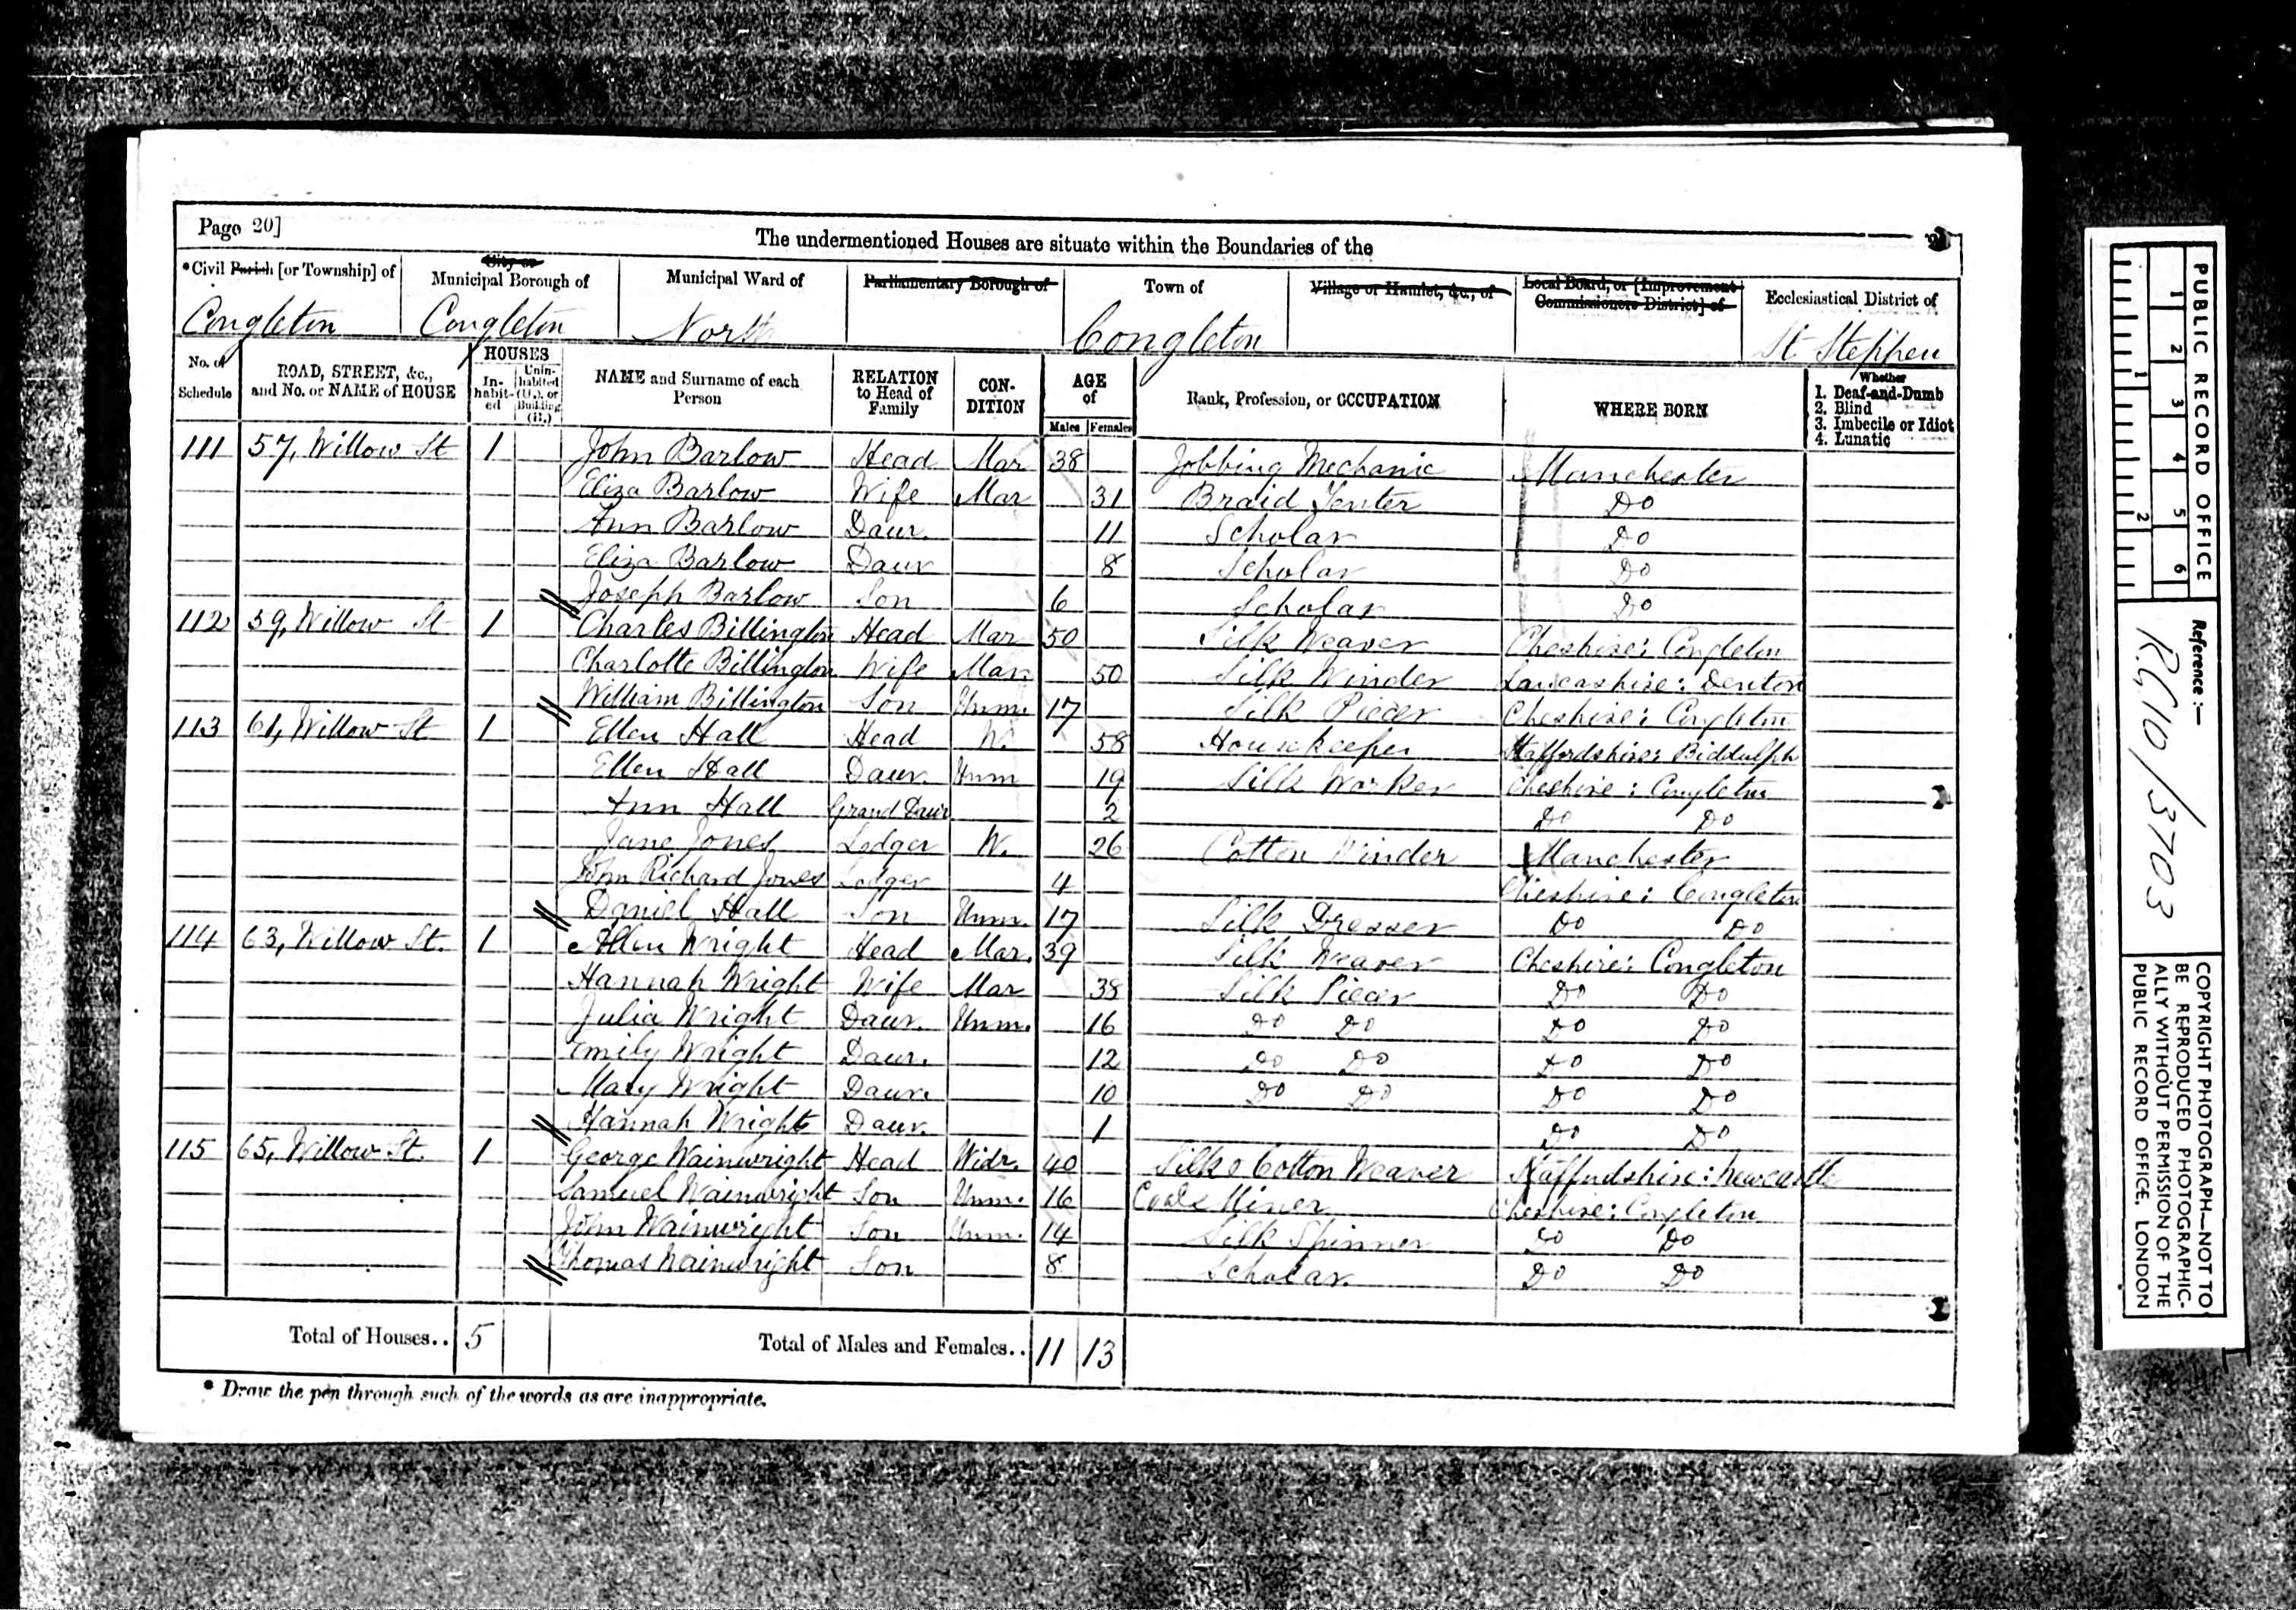 Page 20]
The undermentioned Houses are situate within the Boundaries of the
*Civil Parish [or Township] of
City or Municipal Borough of
Municipal Ward of
Parliamentary Borough of
Town of
Village or Hamlet, &c., of
Local Board, or [Improvement Commissioners District] of
Ecclesiastical District of
Congleton Congleton North Congleton St Stephen
No. of Schedule
ROAD, STREET, &c., and No. or NAME of HOUSE
HOUSES
In-habit-ed
Unin-habited (U.), or Building (B.)
NAME and Surname of each Person
RELATION to Head of Family
CON-DITION
AGE of
Males Females
Rank, Profession, or OCCUPATION
WHERE BORN
Whether
1. Deaf-and-Dumb
2. Blind
3. Imbecile or Idiot
4. Lunatic
111 57, Willow St 1 John Barlow Head Mar 38 Jobbing Mechanic Manchester
Eliza Barlow Wife Mar 31 Braid Tenter Do
Ann Barlow Daur. 11 Scholar Do
Eliza Barlow Daur 8 Scholar Do
Joseph Barlow Son 6 Scholar Do
112 59, Willow St 1 Charles Billington Head Mar 50 Silk Weaver Cheshire: Congleton
Charlotte Billington Wife Mar. 50 Silk Winder Lancashire: Denton
William Billington Son Unm. 17 Silk Piecer Cheshire: Congleton
113 61, Willow St 1 Ellen Hall Head W. 58 Housekeeper Staffordshire: Biddulph
Ellen Hall Daur. Unm 19 Silk Worker Cheshire: Congleton
Ann Hall Grand Daur 2 Do Do
Jane Jones Lodger W. 26 Cotton Winder Manchester
John Richard Jones Lodger 4 Cheshire: Congleton
Daniel Hall Son Unm. 17 Silk Dresser Do Do
114 63, Willow St. 1 Allen Wright Head Mar. 39 Silk Weaver Cheshire: Congleton
Hannah Wright Wife Mar 38 Silk Piecer Do Do
Julia Wright Daur. Unm. 16 Do Do Do Do
Emily Wright Daur. 12 Do Do Do Do
Mary Wright Daur. 10 Do Do Do Do
Hannah Wright Daur. 1 Do Do
115 65, Willow St. 1 George Wainwright Head Widr. 40 Silk & Cotton Weaver Staffordshire: Newcastle
Samuel Wainwright Son Unm. 16 Coal Miner Cheshire: Congleton
John Wainwright Son Unm. 14 Silk Spinner Do Do
Thomas Wainwright Son 8 Scholar. Do Do
Total of Houses.. 5 Total of Males and Females.. 11 13
* Draw the pen through such of the words as are inappropriate.
PUBLIC RECORD OFFICE
1 2 3 4 5 6
1 2
Reference:—
RG10/3703
COPYRIGHT PHOTOGRAPH—NOT TO
BE REPRODUCED PHOTOGRAPHIC-
ALLY WITHOUT PERMISSION OF THE
PUBLIC RECORD OFFICE, LONDON